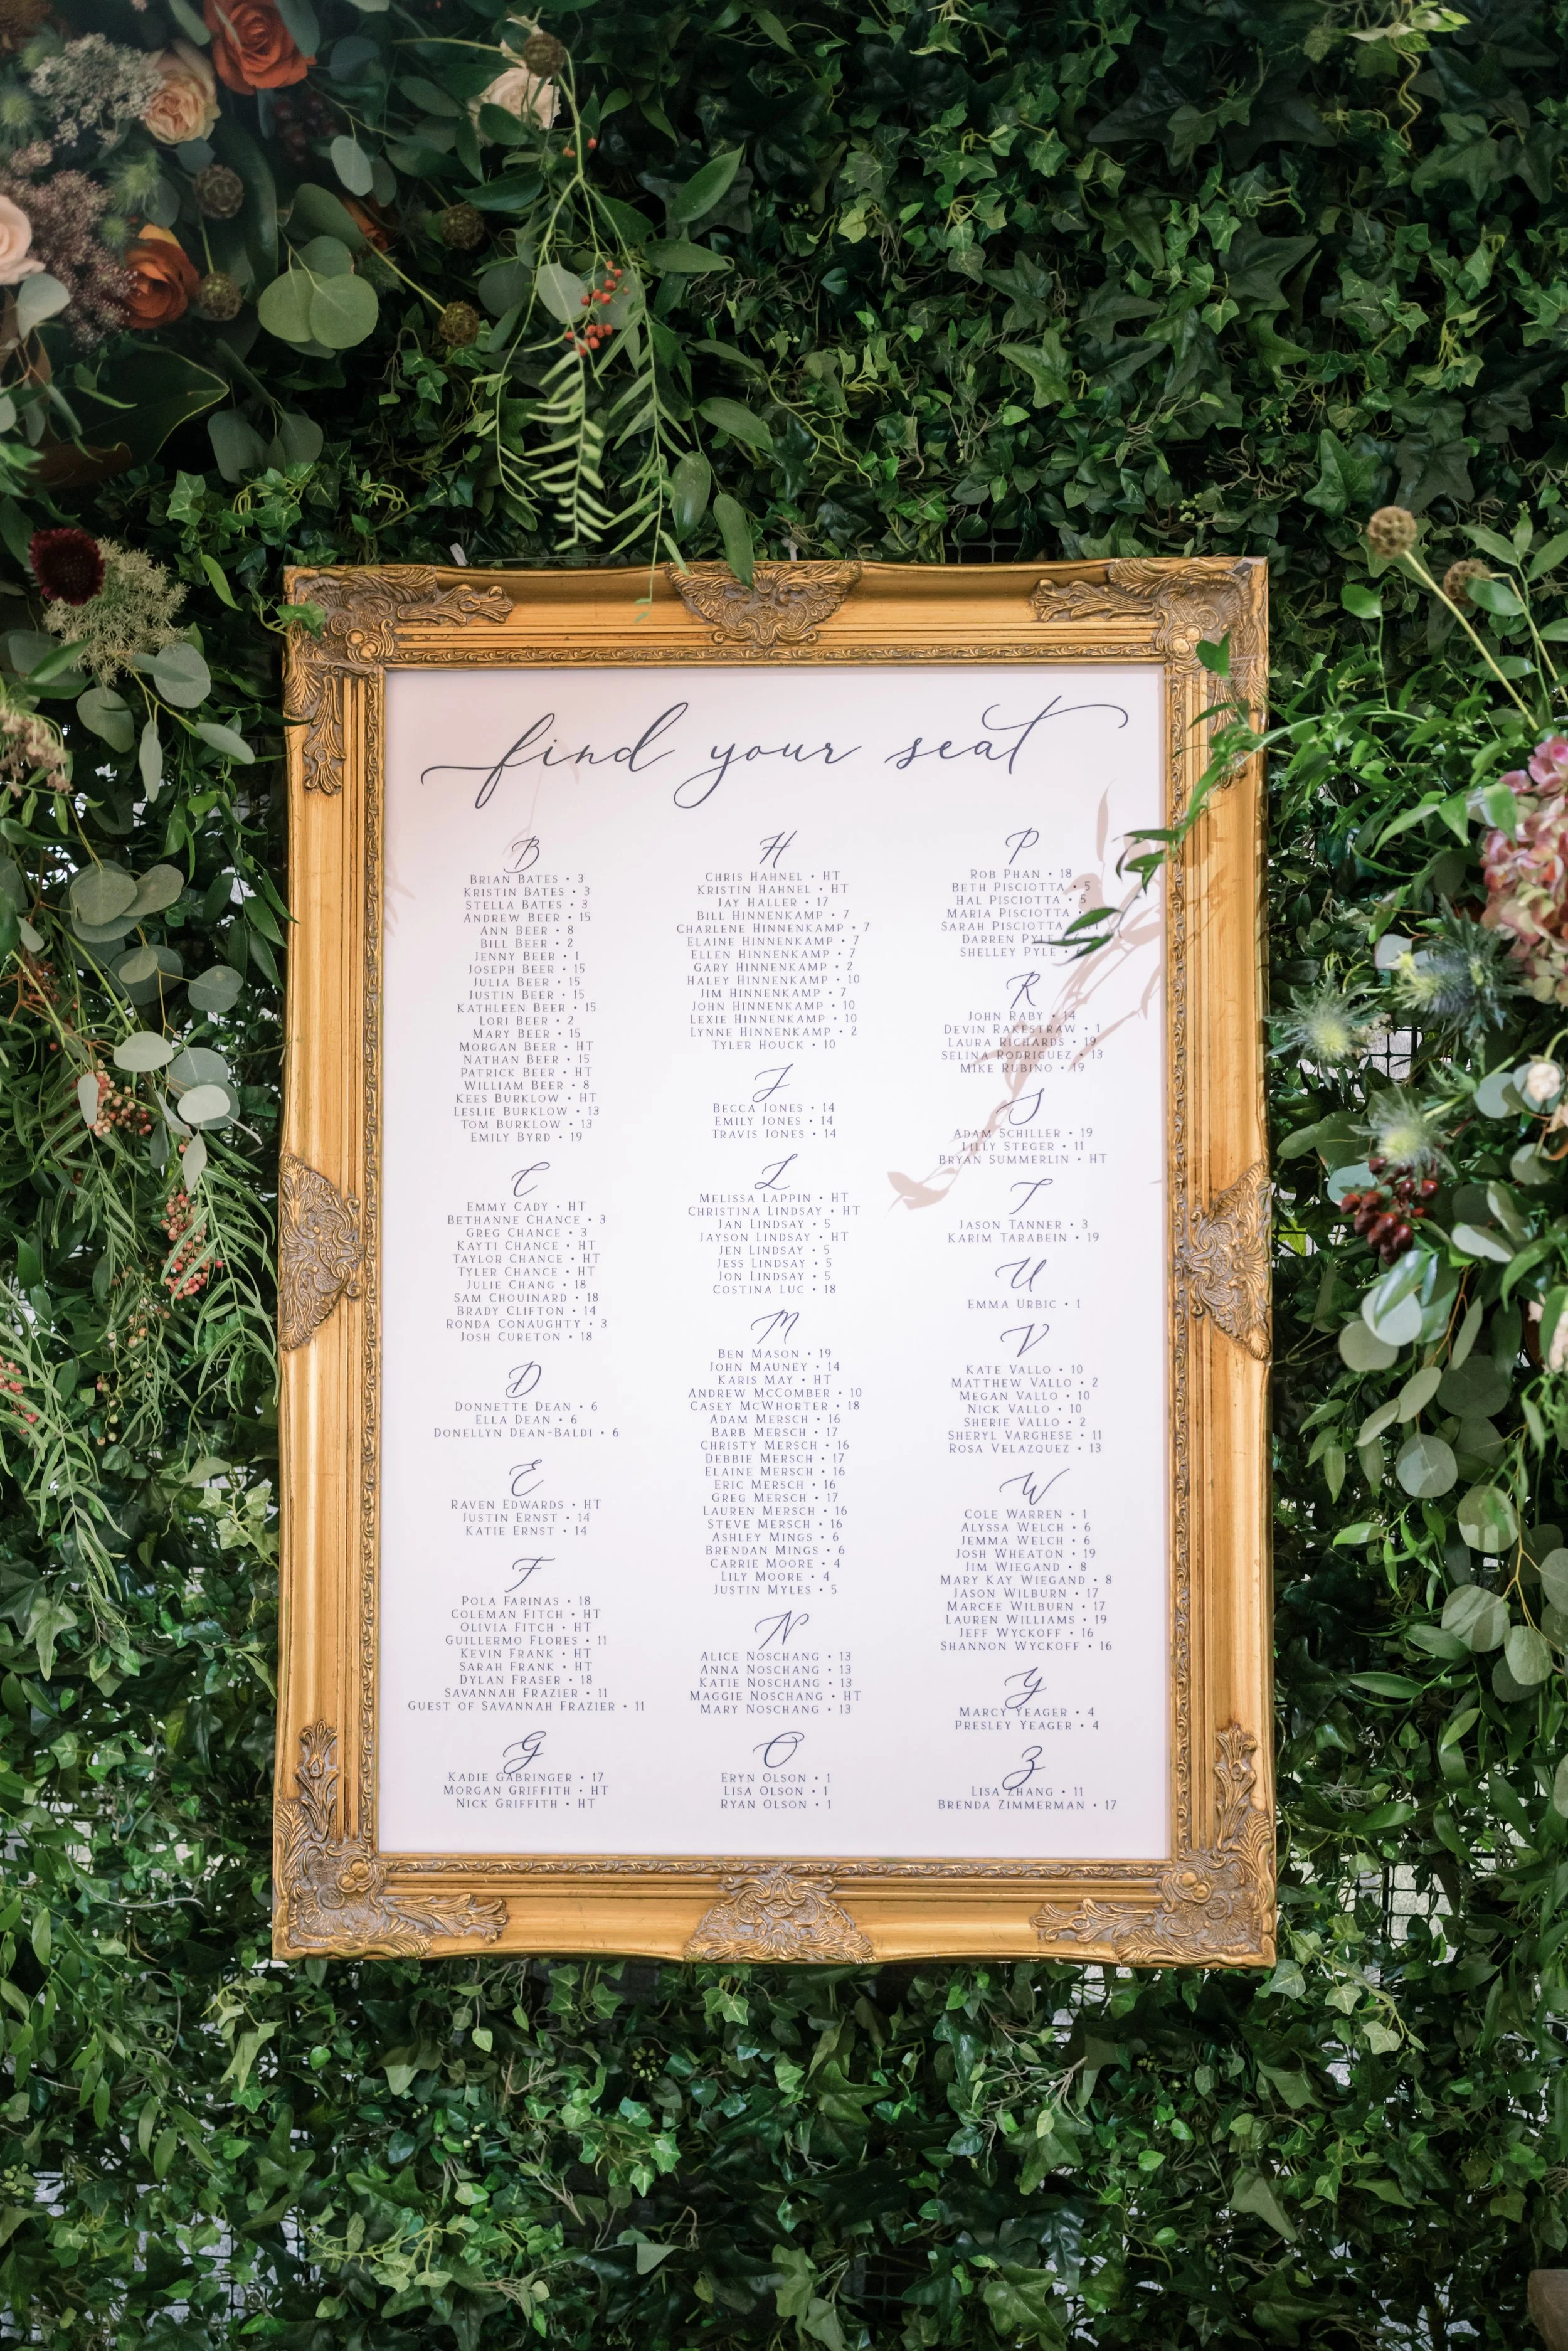 find your seat
B
Brian Bates • 3
Kristin Bates • 3
Stella Bates • 3
Andrew Beer • 15
Ann Beer • 8
Bill Beer • 2
Jenny Beer • 1
Joseph Beer • 15
Julia Beer • 15
Justin Beer • 15
Kathleen Beer • 15
Lori Beer • 2
Mary Beer • 15
Morgan Beer • HT
Nathan Beer • 15
Patrick Beer • HT
William Beer • 8
Kees Burklow • HT
Leslie Burklow • 13
Tom Burklow • 13
Emily Byrd • 19
C
Emmy Cady • HT
Bethanne Chance • 3
Greg Chance • 3
Kayti Chance • HT
Taylor Chance • HT
Tyler Chance • HT
Julie Chang • 18
Sam Chouinard • 18
Brady Clifton • 14
Ronda Conaughty • 3
Josh Cureton • 18
D
Donnette Dean • 6
Ella Dean • 6
Donellyn Dean-Baldi • 6
E
Raven Edwards • HT
Justin Ernst • 14
Katie Ernst • 14
F
Pola Farinas • 18
Coleman Fitch • HT
Olivia Fitch • HT
Guillermo Flores • 11
Kevin Frank • HT
Sarah Frank • HT
Dylan Fraser • 18
Savannah Frazier • 11
Guest of Savannah Frazier • 11
G
Kadie Gabringer • 17
Morgan Griffith • HT
Nick Griffith • HT
H
Chris Hahnel • HT
Kristin Hahnel • HT
Jay Haller • 17
Bill Hinnenkamp • 7
Charlene Hinnenkamp • 7
Elaine Hinnenkamp • 7
Ellen Hinnenkamp • 7
Gary Hinnenkamp • 2
Haley Hinnenkamp • 10
Jim Hinnenkamp • 7
John Hinnenkamp • 10
Lexie Hinnenkamp • 10
Lynne Hinnenkamp • 2
Tyler Houck • 10
J
Becca Jones • 14
Emily Jones • 14
Travis Jones • 14
L
Melissa Lappin • HT
Christina Lindsay • HT
Jan Lindsay • 5
Jayson Lindsay • HT
Jen Lindsay • 5
Jess Lindsay • 5
Jon Lindsay • 5
Costina Luc • 18
M
Ben Mason • 19
John Mauney • 14
Karis May • HT
Andrew McComber • 10
Casey McWhorter • 18
Adam Mersch • 16
Barb Mersch • 17
Christy Mersch • 16
Debbie Mersch • 17
Elaine Mersch • 16
Eric Mersch • 16
Greg Mersch • 17
Lauren Mersch • 16
Steve Mersch • 16
Ashley Mings • 6
Brendan Mings • 6
Carrie Moore • 4
Lily Moore • 4
Justin Myles • 5
N
Alice Noschang • 13
Anna Noschang • 13
Katie Noschang • 13
Maggie Noschang • HT
Mary Noschang • 13
O
Eryn Olson • 1
Lisa Olson • 1
Ryan Olson • 1
P
Rob Phan • 18
Beth Pisciotta • 5
Hal Pisciotta • 5
Maria Pisciotta •
Sarah Pisciotta
Darren Pyle
Shelley Pyle •
R
John Raby • 14
Devin Rakestraw • 1
Laura Richards • 19
Selina Rodriguez • 13
Mike Rubino • 19
S
Adam Schiller • 19
Lilly Steger • 11
Bryan Summerlin • HT
T
Jason Tanner • 3
Karim Tarabein • 19
U
Emma Urbic • 1
V
Kate Vallo • 10
Matthew Vallo • 2
Megan Vallo • 10
Nick Vallo • 10
Sherie Vallo • 2
Sheryl Varghese • 11
Rosa Velazquez • 13
W
Cole Warren • 1
Alyssa Welch • 6
Jemma Welch • 6
Josh Wheaton • 19
Jim Wiegand • 8
Mary Kay Wiegand • 8
Jason Wilburn • 17
Marcee Wilburn • 17
Lauren Williams • 19
Jeff Wyckoff • 16
Shannon Wyckoff • 16
Y
Marcy Yeager • 4
Presley Yeager • 4
Z
Lisa Zhang • 11
Brenda Zimmerman • 17